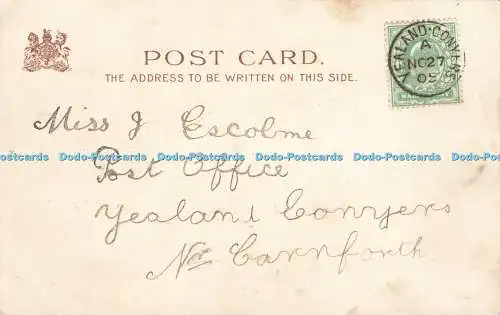 POST CARD.
THE ADDRESS TO BE WRITTEN ON THIS SIDE.
YEALAND·CONYERS
A
NO27
05
Miss J Escolme
Dodo-Postcards Dodo-Postcards Dodo-Postcards Dodo-Postcards Dodo-Postcards
Post Office
Yealand Conyers
Nr Carnforth